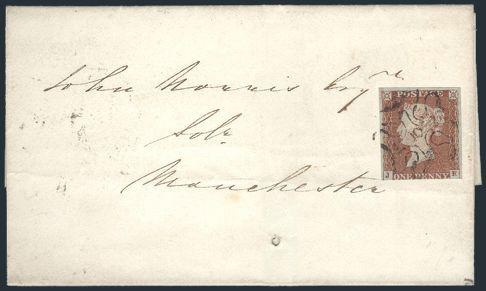 John Morris Esqre
Solr
Manchester
POSTAGE
ONE PENNY